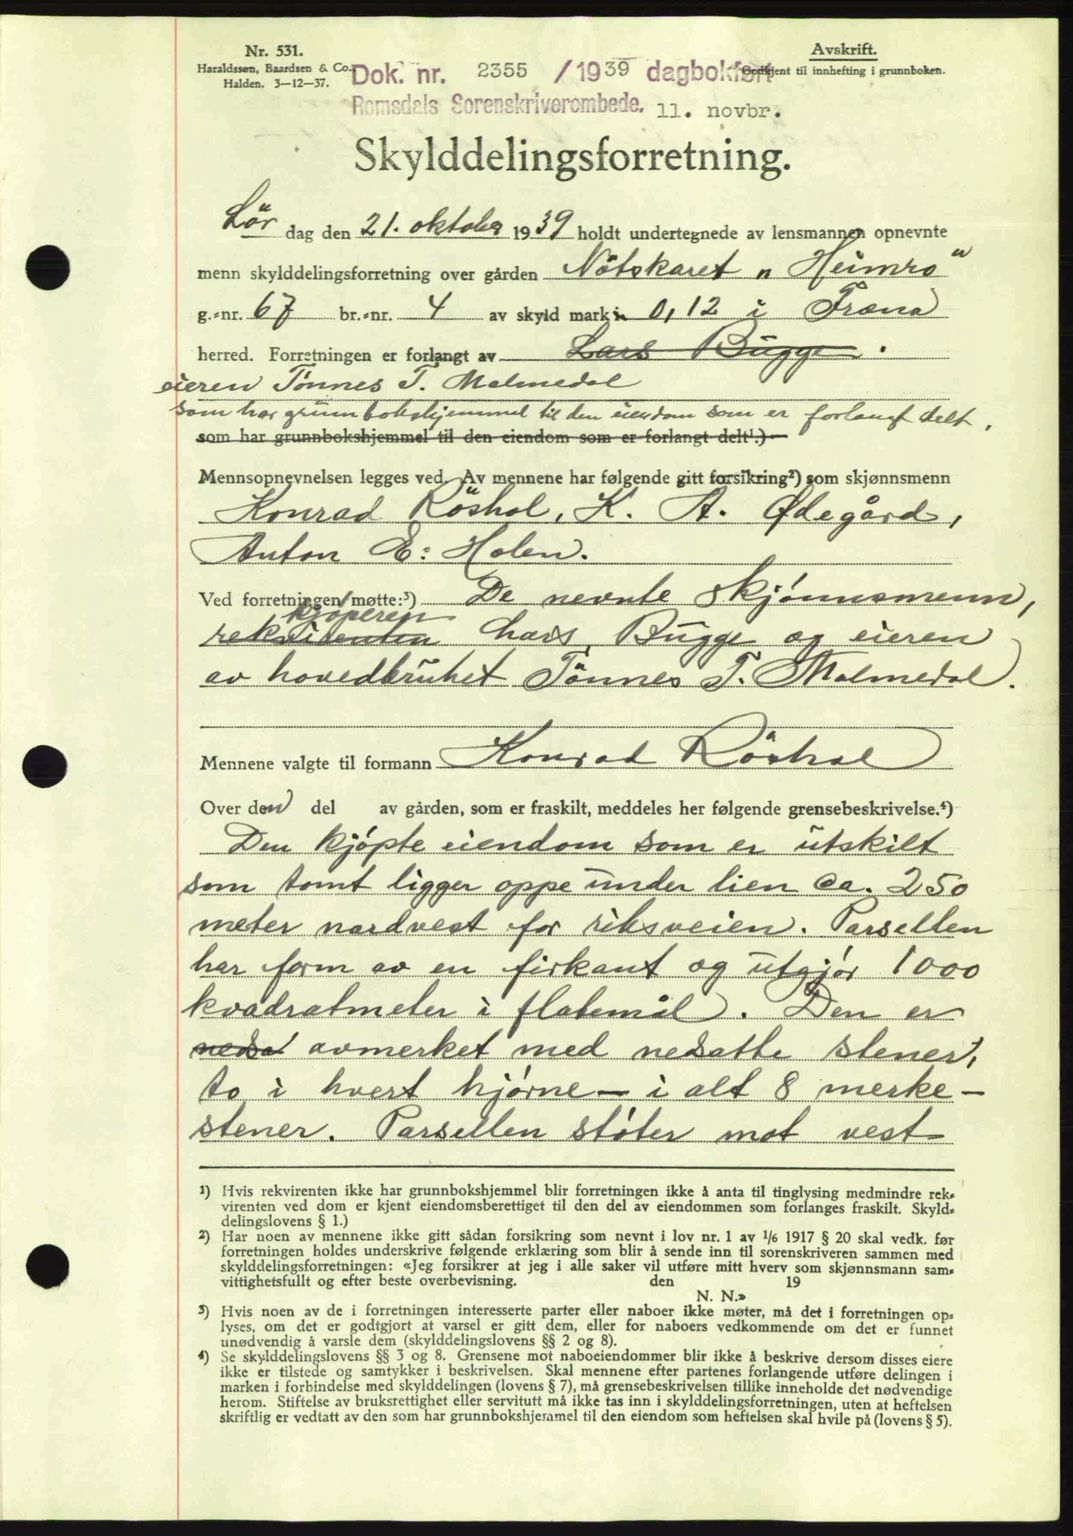 Nr. 531.
Haraldssen, Baardsen & Co.
Halden. 3—12—37.
Avskrift.
Godkjent til innhefting i grunnboken.
Dok. nr. 2355 /1939 dagbokført
Romsdals Sorenskriverembede. 11. novbr.
Skylddelingsforretning.
Lör dag den 21. oktober 1939 holdt undertegnede av lensmannen opnevnte
menn skylddelingsforretning over gården Nötskaret „Heimro“
g.-nr. 67 br.-nr. 4 av skyld mark 0,12 i Fræna
herred. Forretningen er forlangt av Lars Bugge.
eieren Tønnes T. Malmedal
som har grunnbokshjemmel til den eiendom som er forlangt delt.
som har grunnbokshjemmel til den eiendom som er forlangt delt¹.)
Mennsopnevnelsen legges ved. Av mennene har følgende gitt forsikring²) som skjønnsmenn
Konrad Röshol, K. A. Ødegård,
Anton E. Holen.
Ved forretningen møtte:³) De nevnte skjönnsmenn,
kjöperen
rekvirenten Lars Bugge og eieren
av hovedbruket Tönnes T. Malmedal.
Mennene valgte til formann Konrad Röshol
Over den del av gården, som er fraskilt, meddeles her følgende grensebeskrivelse.⁴)
Den kjøpte eiendom som er utskilt
som tomt ligger oppe under lien ca. 250
meter nordvest for riksveien. Parsellen
har form av en firkant og utgjør 1000
kvadratmeter i flatemål. Den er
nedsa avmerket med nedsatte stener,
to i hvert hjørne — i alt 8 merke-
stener. Parsellen støter mot vest
¹) Hvis rekvirenten ikke har grunnbokshjemmel blir forretningen ikke å anta til tinglysing medmindre rek-
virenten ved dom er kjent eiendomsberettiget til den del av eiendommen som forlanges fraskilt. Skyld-
delingslovens § 1.)
²) Har noen av mennene ikke gitt sådan forsikring som nevnt i lov nr. 1 av 1/6 1917 § 20 skal vedk. før
forretningen holdes underskrive følgende erklæring som blir å sende inn til sorenskriveren sammen med
skylddelingsforretningen: «Jeg forsikrer at jeg i alle saker vil utføre mitt hverv som skjønnsmann sam-
vittighetsfullt og efter beste overbevisning. den 19
N. N.»
³) Hvis noen av de i forretningen interesserte parter eller naboer ikke møter, må det i forretningen op-
lyses, om det er godtgjort at varsel er gitt dem, eller for naboers vedkommende om det er funnet
unødvendig å varsle dem (skylddelingslovens §§ 2 og 8).
⁴) Se skylddelingslovens §§ 3 og 8. Grensene mot naboeiendommer blir ikke å beskrive dersom disses eiere
ikke er tilstede og samtykker i beskrivelsen. Skal mennene efter partenes forlangende utføre delingen i
marken i forbindelse med skylddelingen (lovens § 7), må grensebeskrivelsen tillike inneholde det nødvendige
herom. Stiftelse av bruksrettighet eller servitutt må ikke tas inn i skylddelingsforretningen, uten at heftelsen
skriftlig er vedtatt av den som har grunnbokshjemmel til den eiendom som heftelsen skal hvile på (lovens § 5).